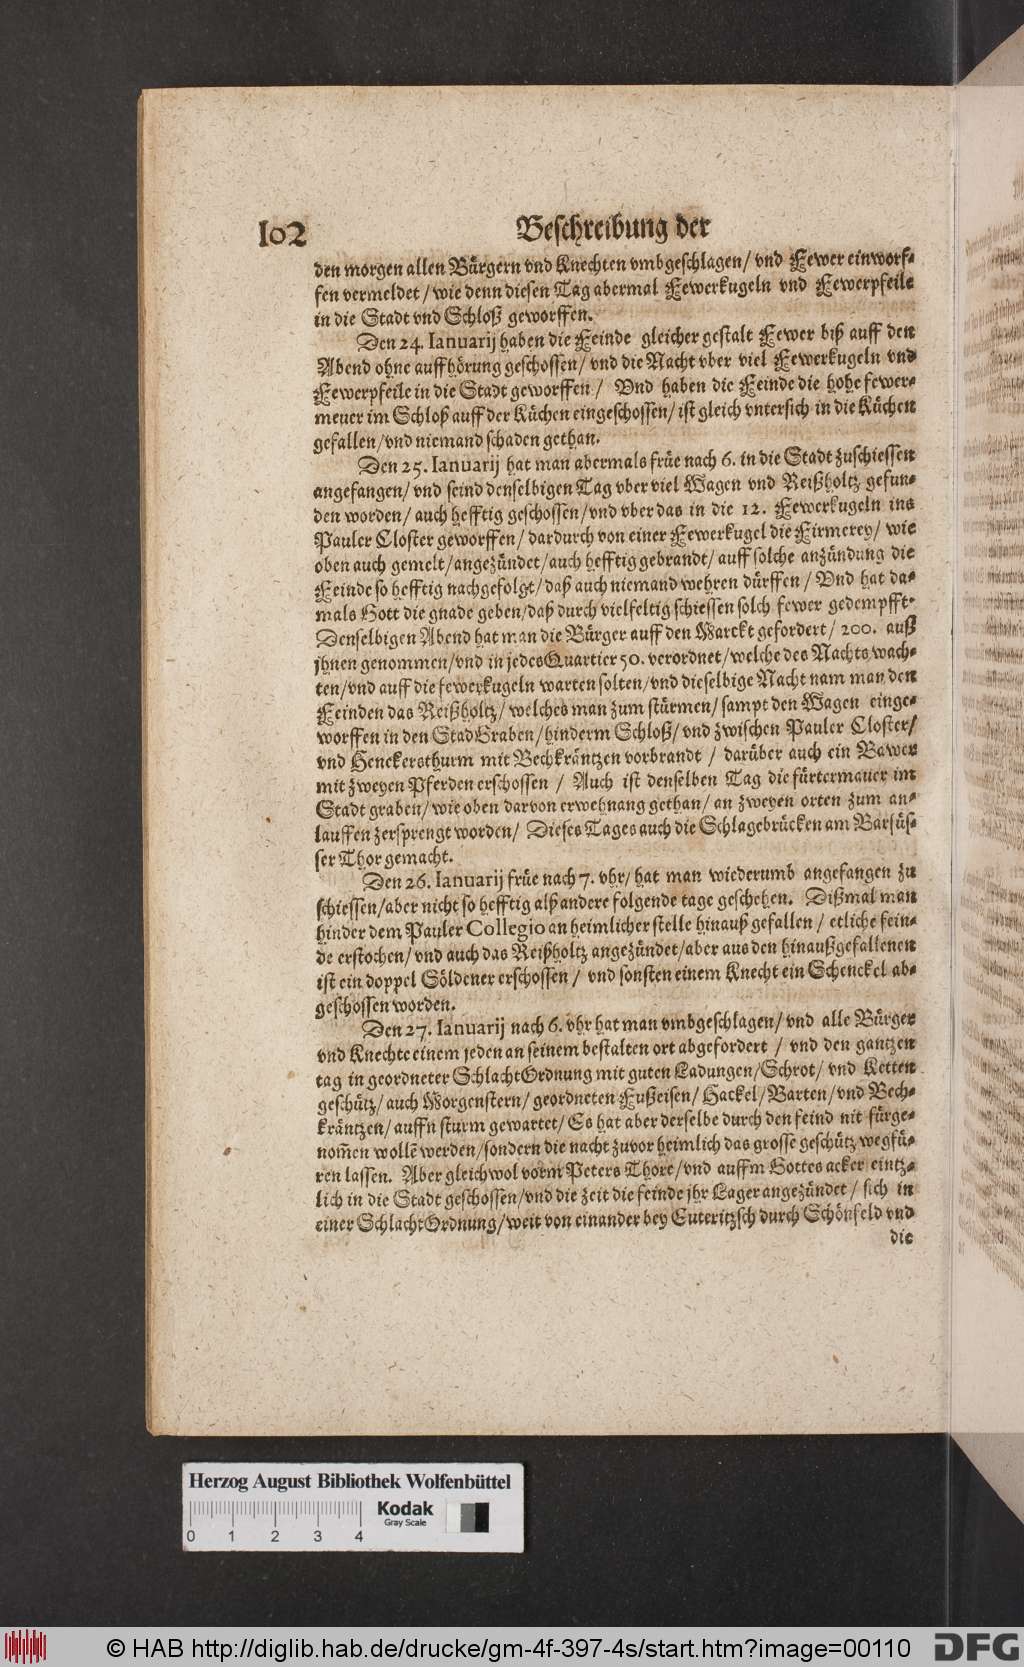 102
Beschreibung der
den morgen allen Bürgern vnd Knechten vmbgeschlagen/ vnd Fewer einworf-
fen vermeldet/ wie denn diesen Tag abermal Fewerkugeln vnd Fewerpfeile
in die Stadt vnd Schloß geworffen.
Den 24. Ianuarij haben die Feinde gleicher gestalt Fewer biß auff den
Abend ohne auffhörung geschossen/ vnd die Nacht vber viel Fewerkugeln vnd
Fewerpfeile in die Stadt geworffen/ Vnd haben die Feinde die hohe fewer-
meuer im Schloß auff der Küchen eingeschossen/ ist gleich vntersich in die Küchen
gefallen/ vnd niemand schaden gethan.
Den 25. Ianuarij hat man abermals früe nach 6. in die Stadt zuschiessen
angefangen/ vnd seind denselbigen Tag vber viel Wagen vnd Reißholtz gefun-
den worden/ auch hefftig geschossen/ vnd vber das in die 12. Fewerkugeln ins
Pauler Closter geworffen/ dardurch von einer Fewerkugel die Firmerey/ wie
oben auch gemelt/ angezündet/ auch hefftig gebrandt/ auff solche anzündung die
Feinde so hefftig nachgefolgt/ daß auch niemand wehren dürffen/ Vnd hat da-
mals Gott die gnade geben/ daß durch vielfeltig schiessen solch fewer gedempfft.
Denselbigen Abend hat man die Bürger auff den Marckt gefordert/ 200. auß
jhnen genommen/ vnd in jedes Quartier 50. verordnet/ welche des Nachts wach-
ten/ vnd auff die fewerkugeln warten solten/ vnd dieselbige Nacht nam man den
Feinden das Reißholtz/ welches man zum stürmen/ sampt den Wagen einge-
worffen in den StadGraben/ hinderm Schloß/ vnd zwischen Pauler Closter/
vnd Henckersthurm mit Bechkräntzen vorbrandt/ darüber auch ein Bawer
mit zweyen Pferden erschossen/ Auch ist denselben Tag die fürtermauer im
Stadt graben/ wie oben darvon erwehnang gethan/ an zweyen orten zum an-
lauffen zersprengt worden/ Dieses Tages auch die Schlagebrücken am Barfüs-
ser Thor gemacht.
Den 26. Ianuarij früe nach 7. vhr/ hat man wiederumb angefangen zu
schiessen/ aber nicht so hefftig alß andere folgende tage geschehen. Dißmal man
hinder dem Pauler Collegio an heimlicher stelle hinauß gefallen/ etliche fein-
de erstochen/ vnd auch das Reißholtz angezündet/ aber aus den hinaußgefallenen
ist ein doppel Söldener erschossen/ vnd sonsten einem Knecht ein Schenckel ab-
geschossen worden.
Den 27. Ianuarij nach 6. vhr hat man vmbgeschlagen/ vnd alle Bürger
vnd Knechte einem jeden an seinem bestalten ort abgefordert/ vnd den gantzen
tag in geordneter SchlachtOrdnung mit guten Ladungen/ Schrot/ vnd Ketten
geschütz/ auch Morgenstern/ geordneten Fußeisen/ Hackel/ Barten/ vnd Bech-
kräntzen/ auffn sturm gewartet/ Es hat aber derselbe durch den feind nit fürge-
nom̃en wollē werden/ sondern die nacht zuvor heimlich das grosse geschütz wegfü-
ren lassen. Aber gleichwol vorm Peters Thore/ vnd auffm Gottes acker eintz-
lich in die Stadt geschossen/ vnd die zeit die feinde jhr Lager angezündet/ sich in
einer SchlachtOrdnung/ weit von einander bey Euteritzsch durch Schönfeld vnd
die
Herzog August Bibliothek Wolfenbüttel
Kodak
Gray Scale
0 1 2 3 4
© HAB http://diglib.hab.de/drucke/gm-4f-397-4s/start.htm?image=00110
DFG